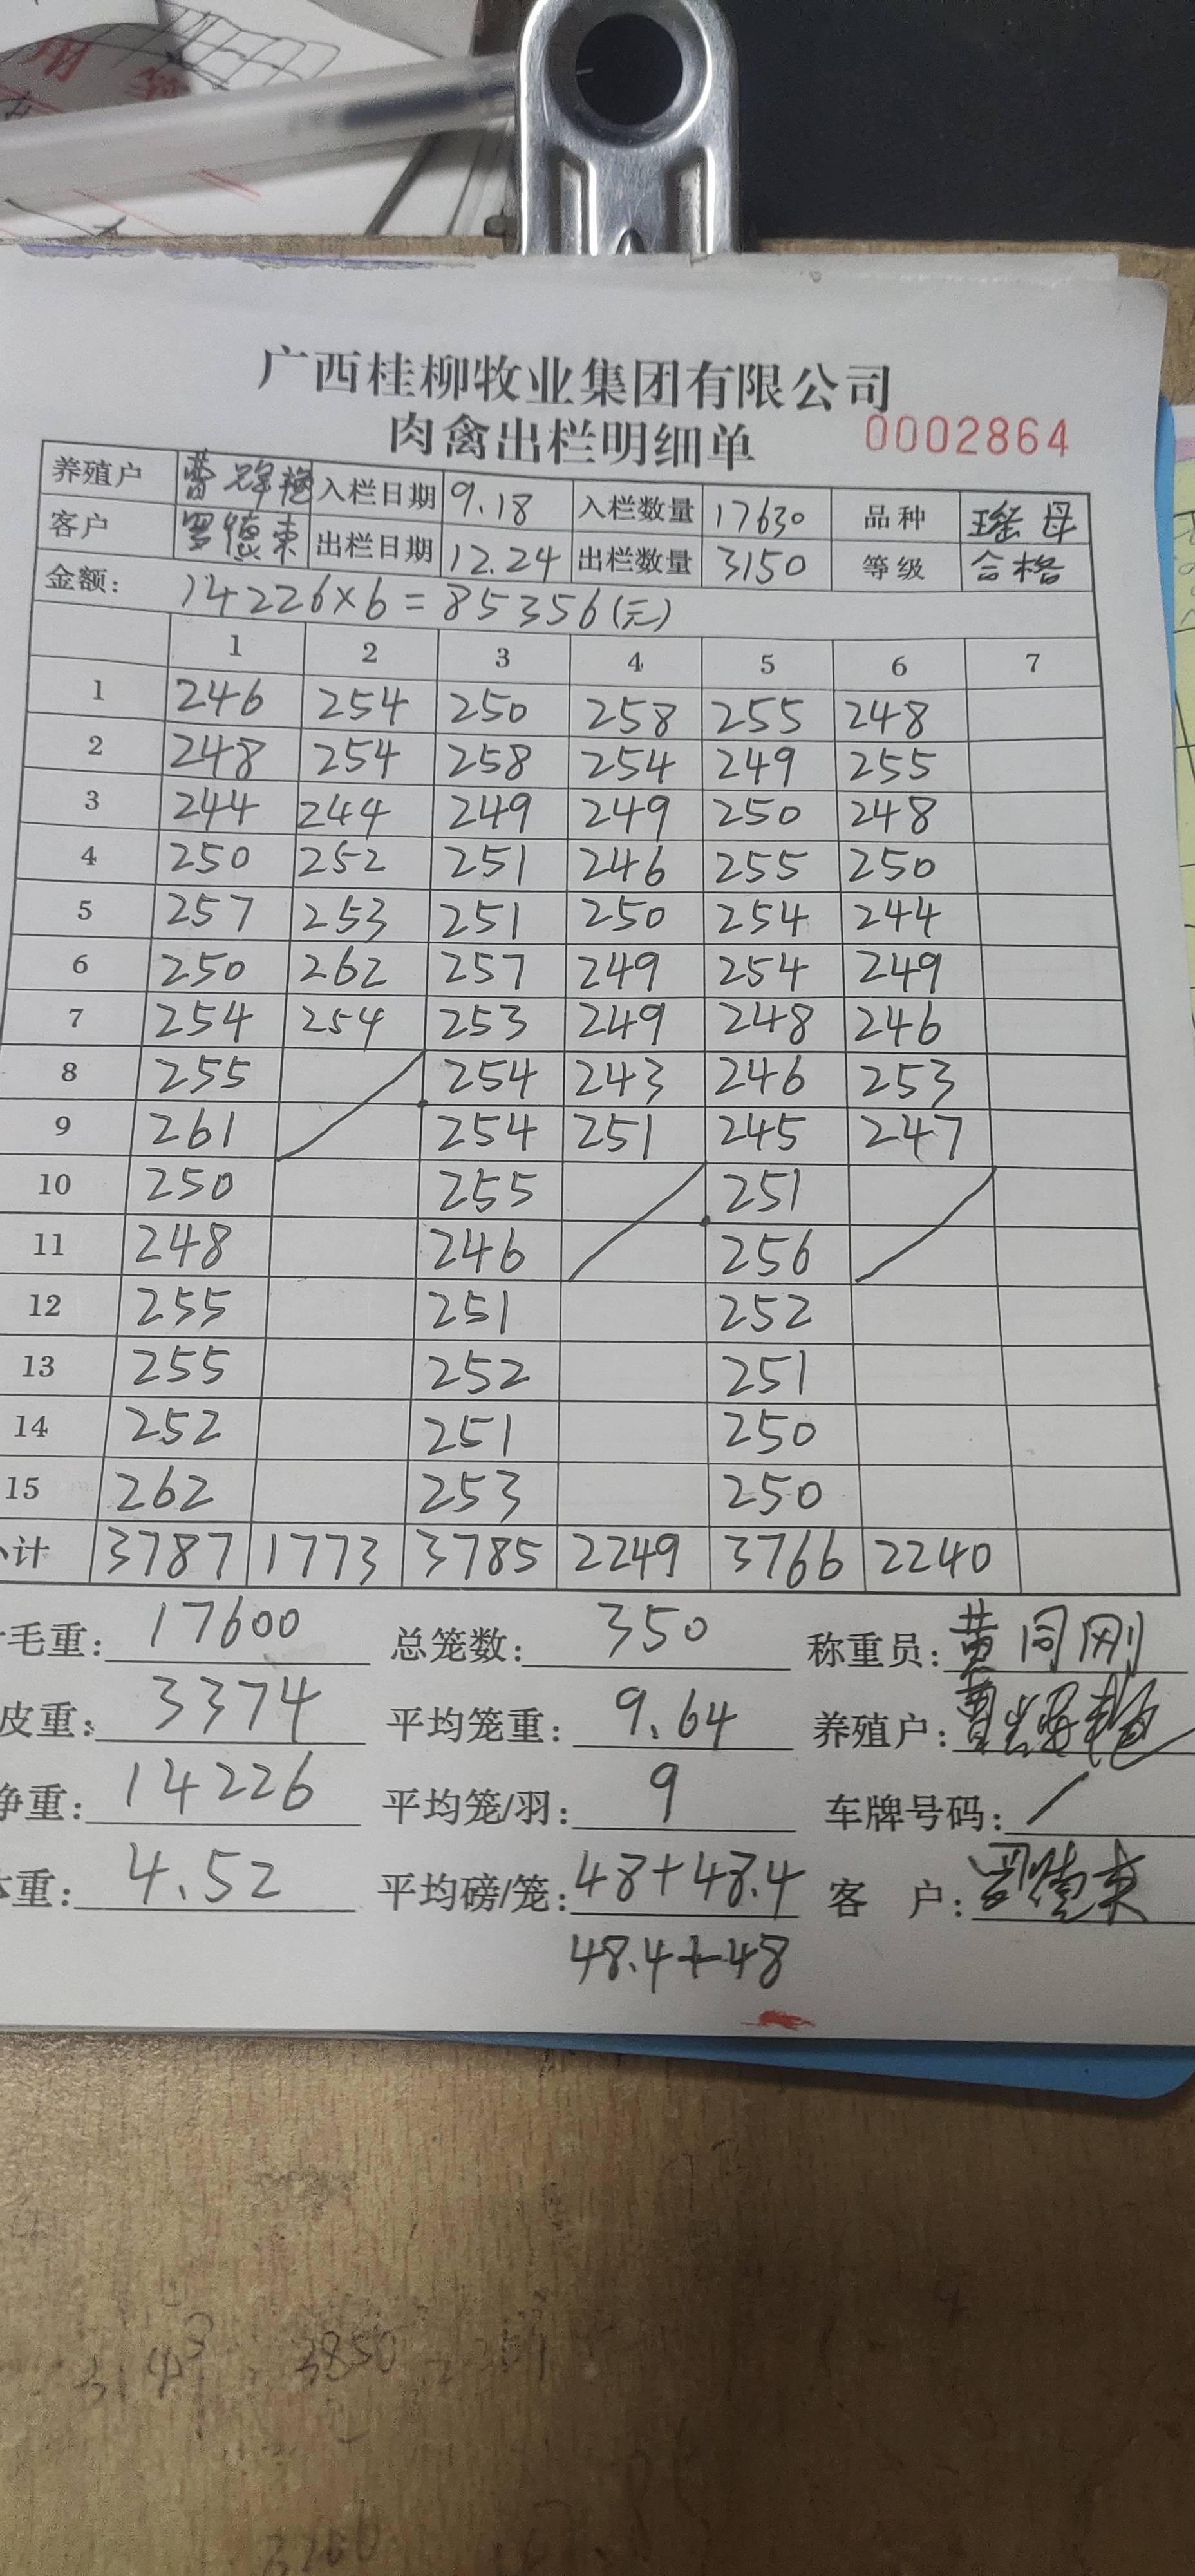 广西桂柳牧业集团有限公司
肉禽出栏明细单 0002864
养殖户 入栏日期 9.18 入栏数量 17630 品种 瑶母
客户 罗德东 出栏日期 12.24 出栏数量 3150 等级 合格
金额: 14226×6=85356(元)
1 2 3 4 5 6 7
1 246 254 250 258 255 248
2 248 254 258 254 249 255
3 244 244 249 249 250 248
4 250 252 251 246 255 250
5 257 253 251 250 254 244
6 250 262 257 249 254 249
7 254 254 253 249 248 246
8 255 254 243 246 253
9 261 254 251 245 247
10 250 255 251
11 248 246 256
12 255 251 252
13 255 252 251
14 252 251 250
15 262 253 250
计 3787 1773 3785 2249 3766 2240
毛重: 17600 总笼数: 350 称重员: 黄同刚
皮重: 3374 平均笼重: 9.64 养殖户:
净重: 14226 平均笼/羽: 9 车牌号码: /
重: 4.52 平均磅/笼: 48+48.4 客户: 罗德东
48.4+48